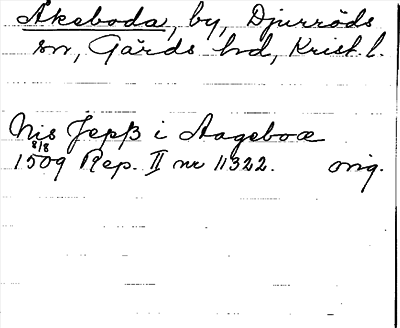 Åkeboda, by, Djurröds
sn, Gärds hd, Krist. l.
Nis Jepß i Aageboæ
8/8
1509 Rep. II nr 11322. orig.